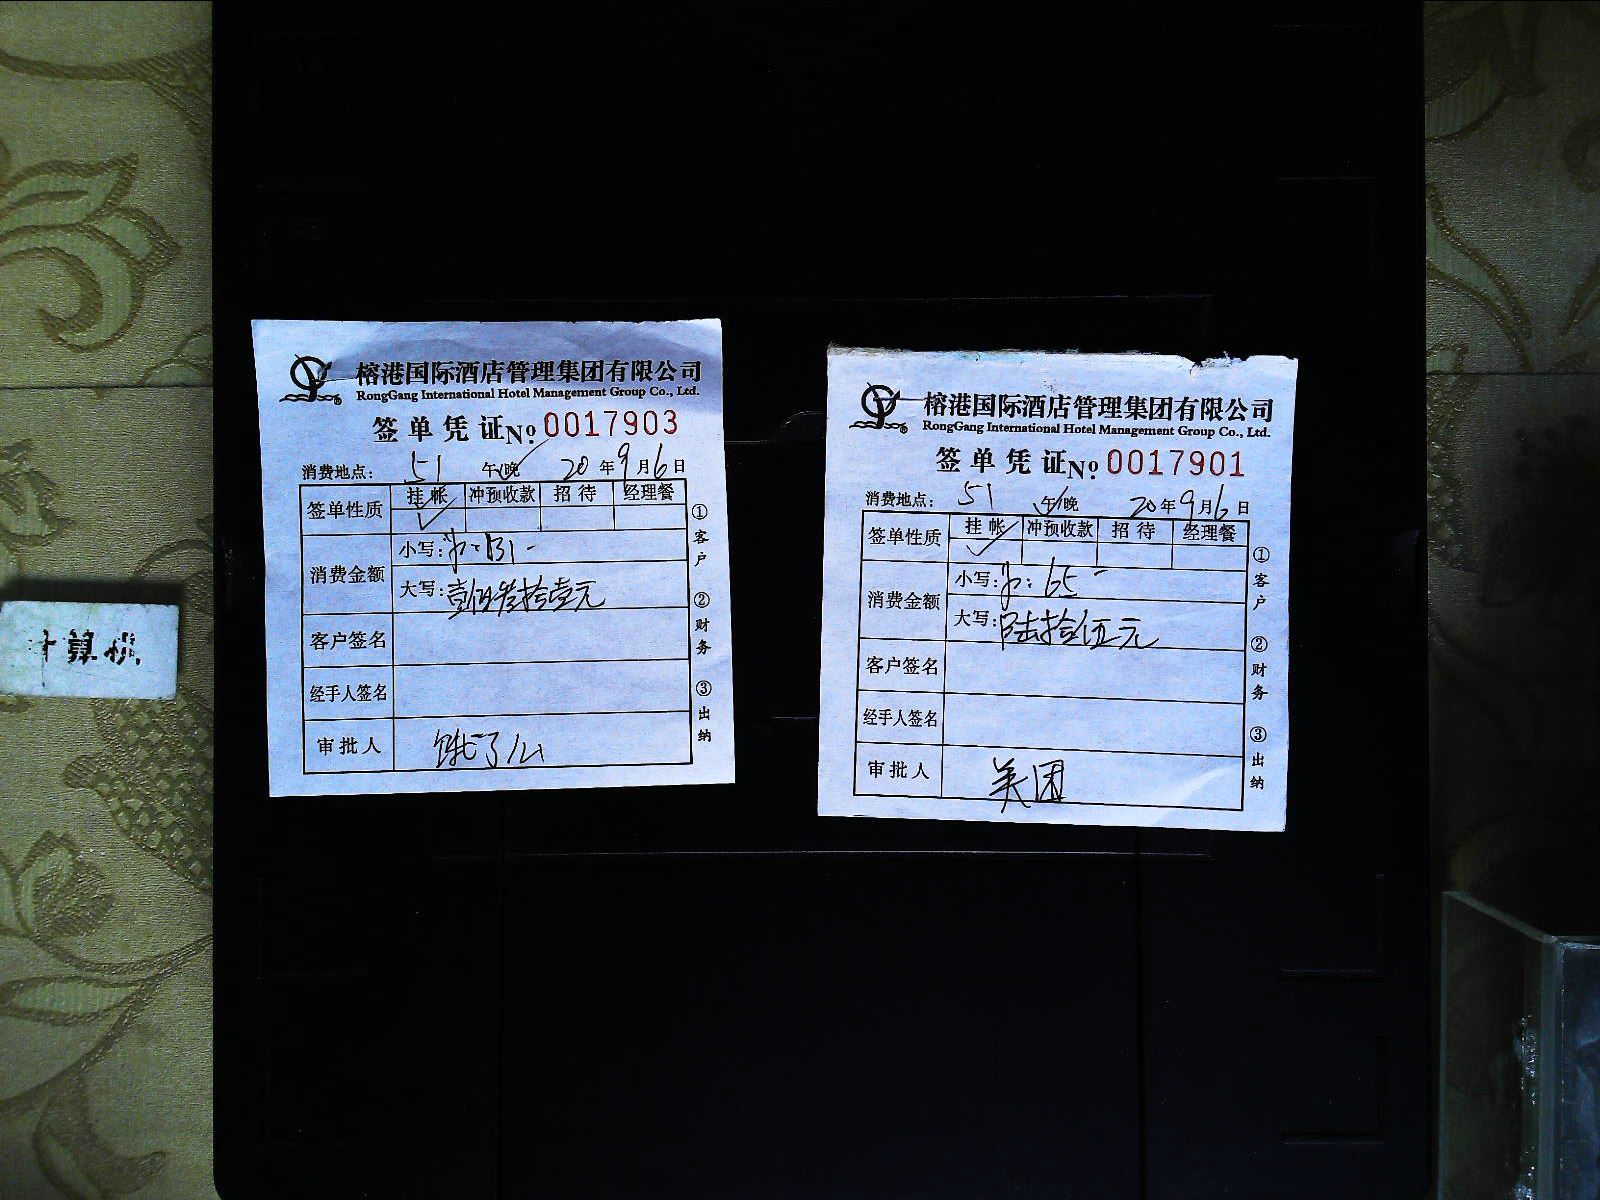 榕港国际酒店管理集团有限公司
RongGang International Hotel Management Group Co., Ltd.
签单凭证 No. 0017903
消费地点: 51 午/晚 20年9月6日
签单性质 挂帐 冲预收款 招待 经理餐
消费金额 小写: 131-
大写: 壹佰叁拾壹元
客户签名
经手人签名
审批人 饿了么
①客户 ②财务 ③出纳
榕港国际酒店管理集团有限公司
RongGang International Hotel Management Group Co., Ltd.
签单凭证 No. 0017901
消费地点: 51 午/晚 20年9月6日
签单性质 挂帐 冲预收款 招待 经理餐
消费金额 小写: 65-
大写: 陆拾伍元
客户签名
经手人签名
审批人 美团
①客户 ②财务 ③出纳
计算机